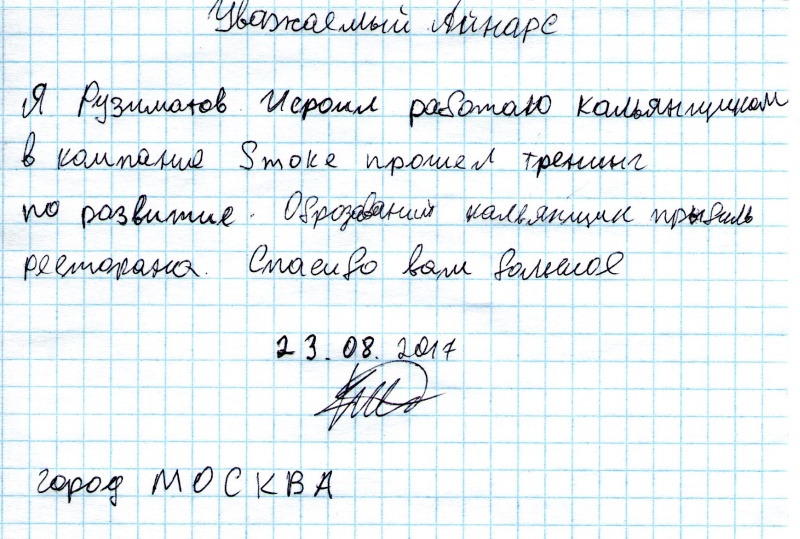 Уважаемый Айнарс
Я Рузиматов Исроил работаю кальянщиком
в компание Smoke прошел тренинг
по развитие. Оброзований кальянщик прыбыль
ресторана. Спасибо вам большое
23.08.2017
город МОСКВА